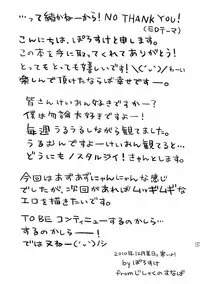 …って続かねーから! NO THANK YOU!
(EDテーマ)
こんにちは、ぽろすけと申します。
この本を手に取ってくれてありがとう!
とってもとっても嬉しいです!\(´ω`)/わーい
楽しんで頂けたなら幸せですー。
皆さんけいおん好きですかー?
僕は勿論大好きですよー!
毎週うるうるしながら観てました。
うるおんですよーけいおん観てると…
どうにもノスタルジイ!きゃんとします。
今回はあずあずにゃんにゃんな感じ
でしたが、次回があればムッギムギな
エロを描きたいです。
TO BE コンティニューするのかしら…
するのかしらー!
ではまたねー(´ω`)ノシ
2010年12月某日。寒いよ!
by ぽろすけ
from じしゃくのすなば
15